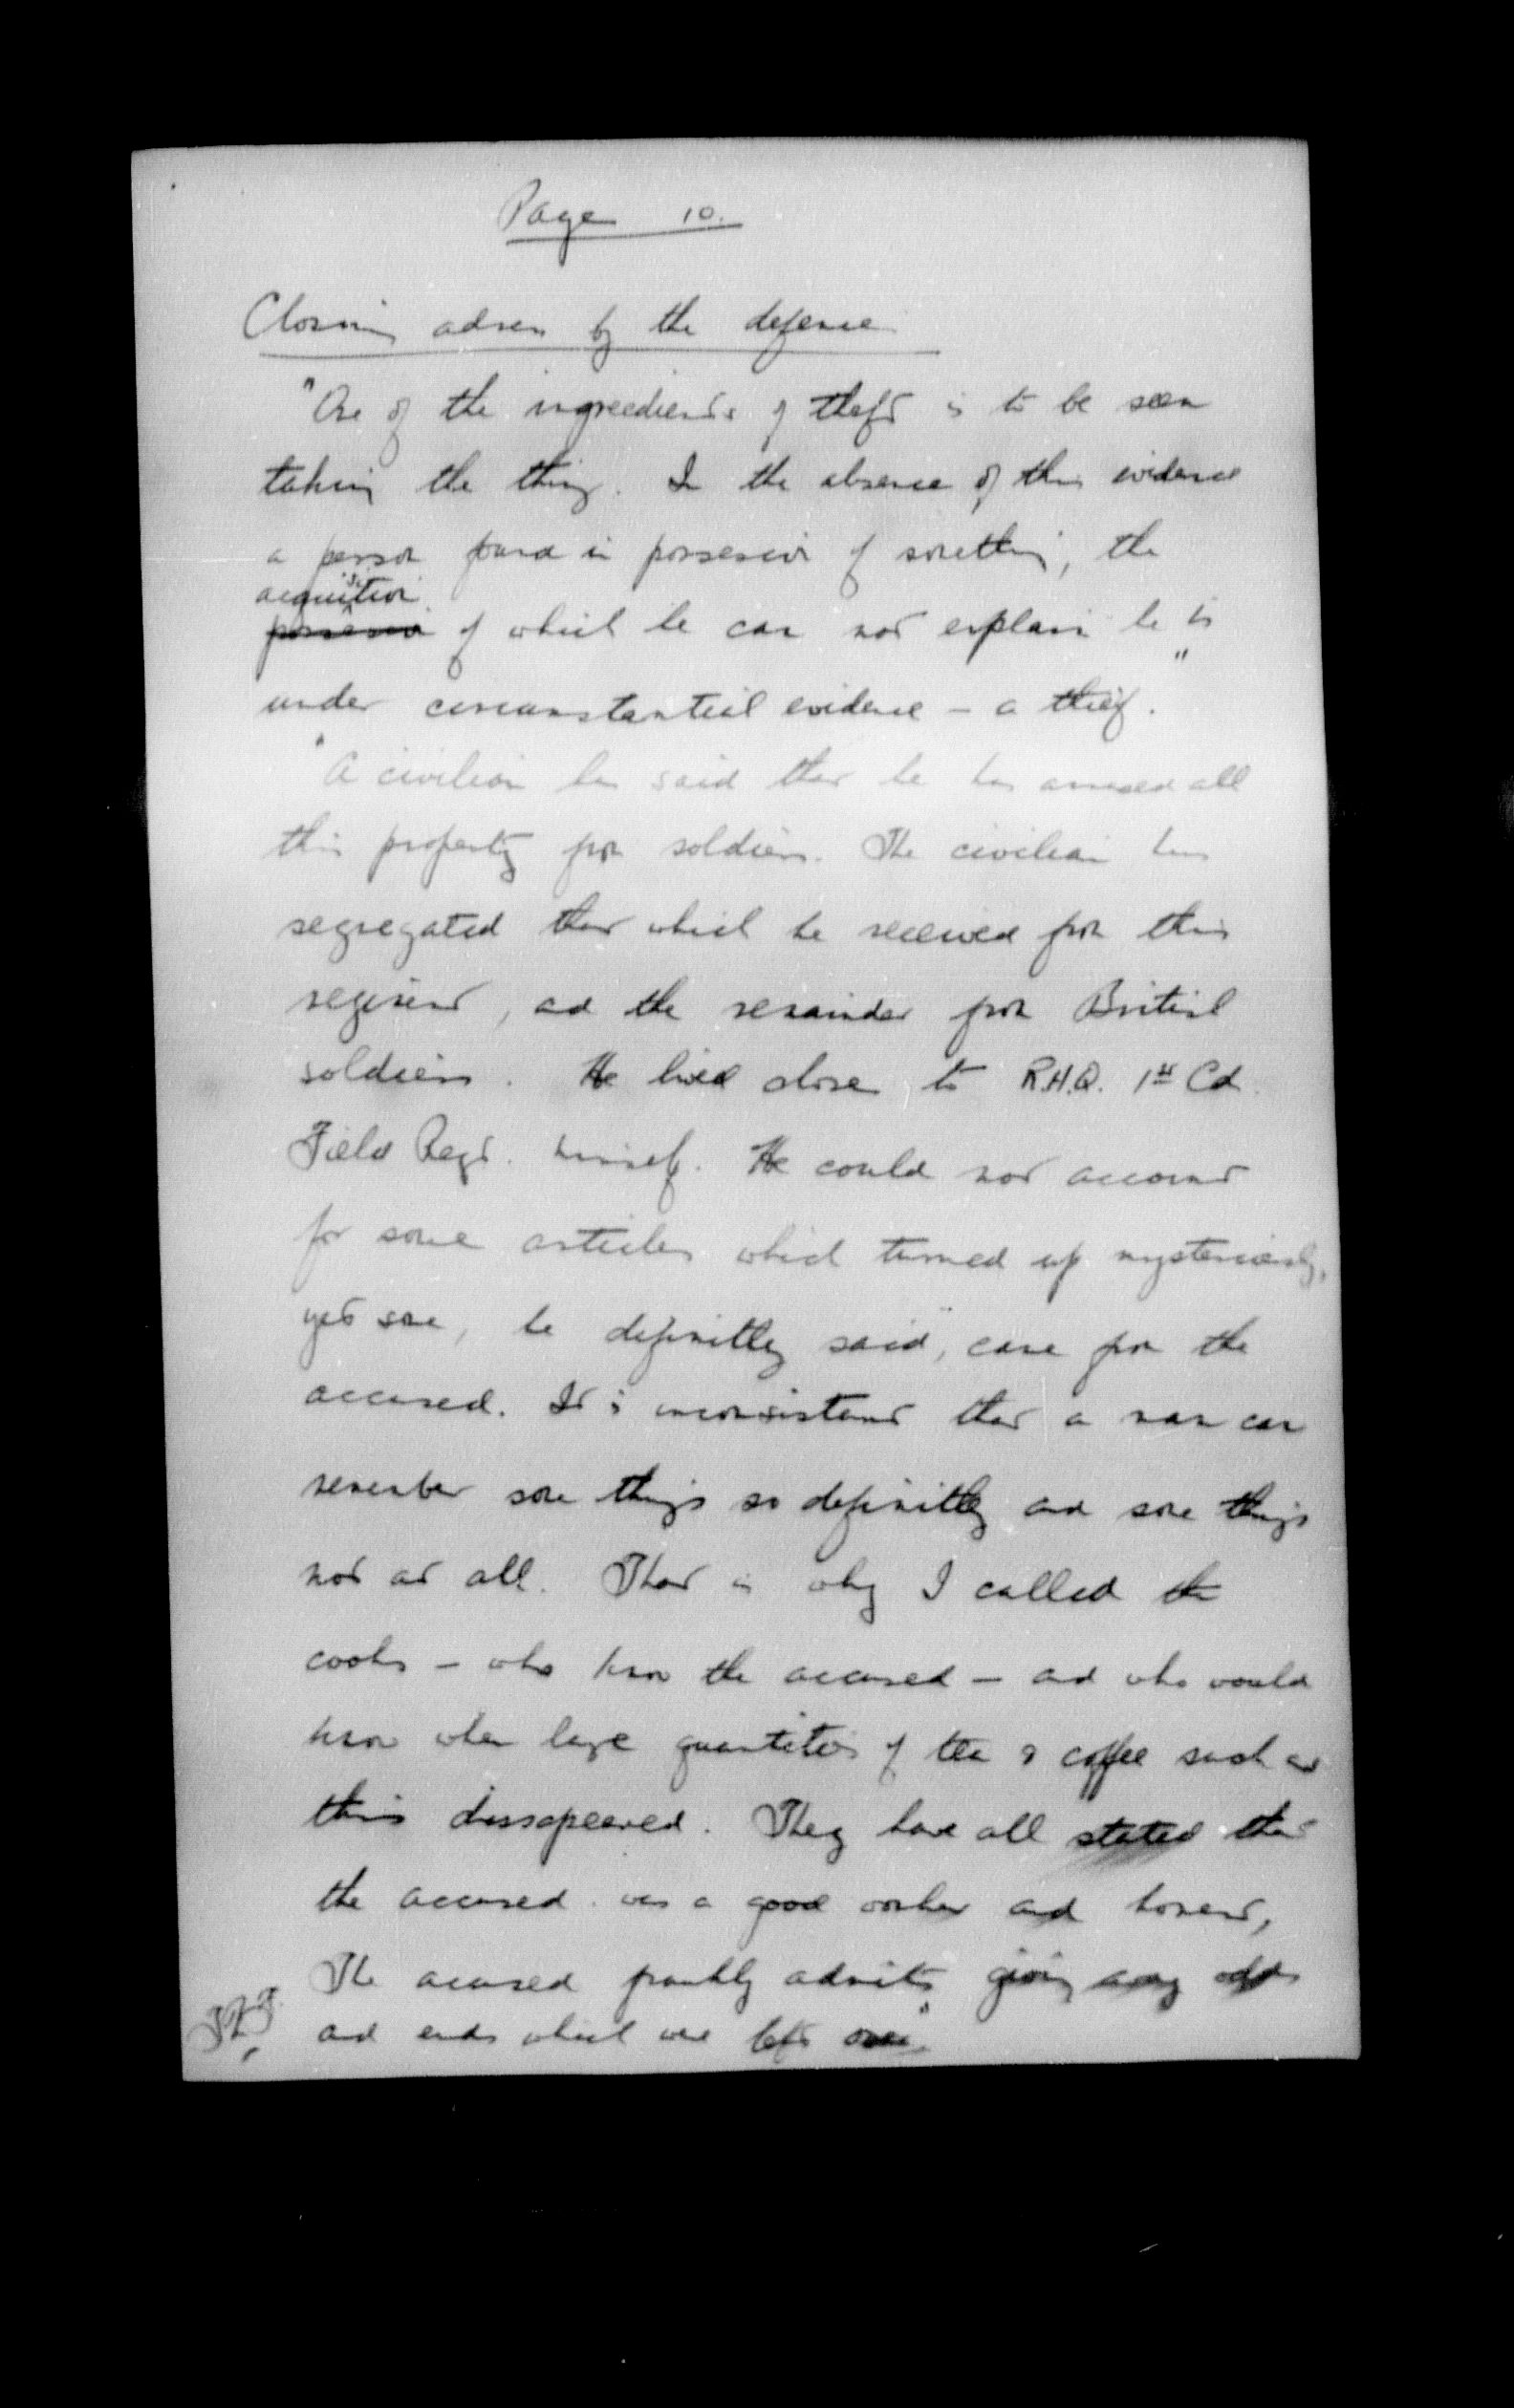 Page 10.
Closing adress by the defence
"One of the ingredients of theft is to be seen
taking the thing. In the absence of this evidence
a person found in possession of something, the
acquisition
possession of which he can not explain he is
under circumstantial evidence - a thief."
"A civilian has said that he has amassed all
this property from soldiers. The civilian has
segregated that which he received from this
regiment, and the remainder from British
soldiers. He lived close to R.H.Q. 1st Cd.
Field Regt. himself. He could not account
for some articles which turned up mysteriously,
yet some, he definitley said, came from the
accused. It is inconsistant that a man can
remember some things so definitley and some things
not at all. That is why I called the
cooks - who know the accused - and who would
know when large quantities of tea & coffee such as
this dissapeared. They have all stated that
the accused was a good worker and honest,
The accused frankly admits giving away odds
and ends which were left over".